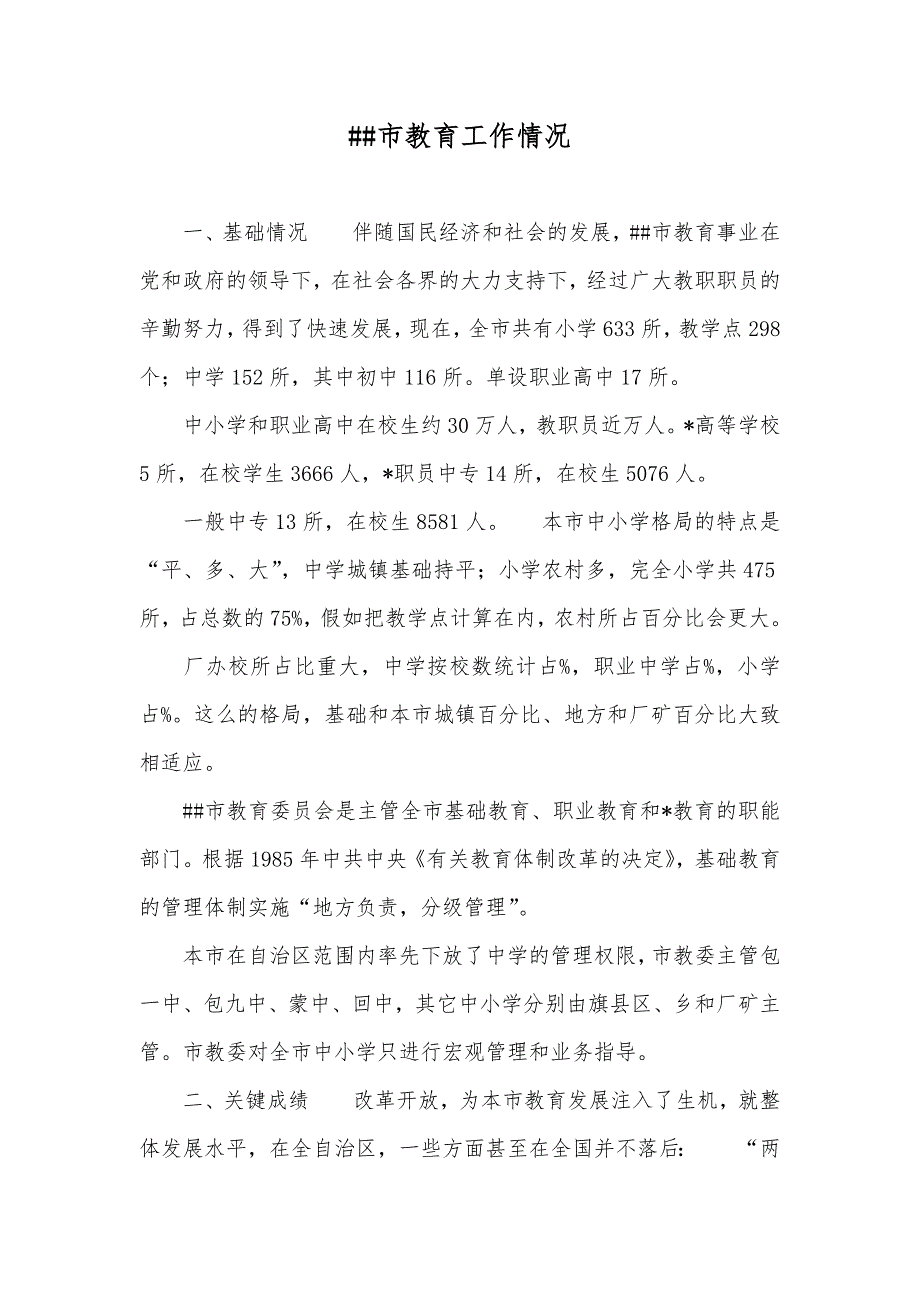 ##市教育工作情况
一、基础情况　　伴随国民经济和社会的发展，##市教育事业在
党和政府的领导下，在社会各界的大力支持下，经过广大教职职员的
辛勤努力，得到了快速发展，现在，全市共有小学 633 所，教学点 298
个；中学 152 所，其中初中 116 所。单设职业高中 17 所。
中小学和职业高中在校生约 30 万人，教职员近万人。*高等学校
5 所，在校学生 3666 人，*职员中专 14 所，在校生 5076 人。
一般中专 13 所，在校生 8581 人。　　本市中小学格局的特点是
“平、多、大”，中学城镇基础持平；小学农村多，完全小学共 475
所，占总数的 75%，假如把教学点计算在内，农村所占百分比会更大。
厂办校所占比重大，中学按校数统计占%，职业中学占%，小学
占%。这么的格局，基础和本市城镇百分比、地方和厂矿百分比大致
相适应。
##市教育委员会是主管全市基础教育、职业教育和*教育的职能
部门。根据 1985 年中共中央《有关教育体制改革的决定》，基础教育
的管理体制实施“地方负责，分级管理”。
本市在自治区范围内率先下放了中学的管理权限，市教委主管包
一中、包九中、蒙中、回中，其它中小学分别由旗县区、乡和厂矿主
管。市教委对全市中小学只进行宏观管理和业务指导。
二、关键成绩　　改革开放，为本市教育发展注入了生机，就整
体发展水平，在全自治区，一些方面甚至在全国并不落后：　　“两